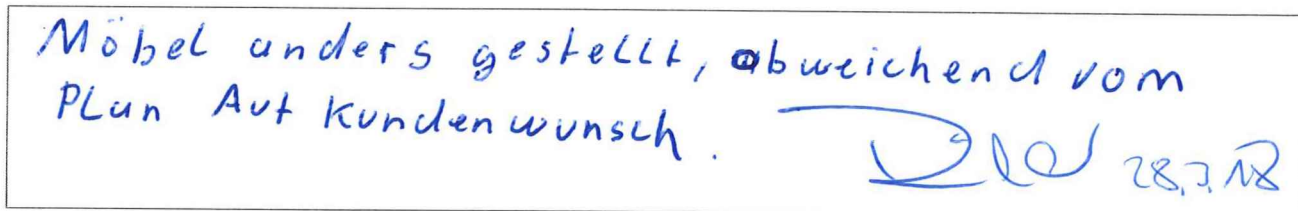 Möbel anders gestellt, abweichend vom
Plan Auf Kundenwunsch.
28.3.18